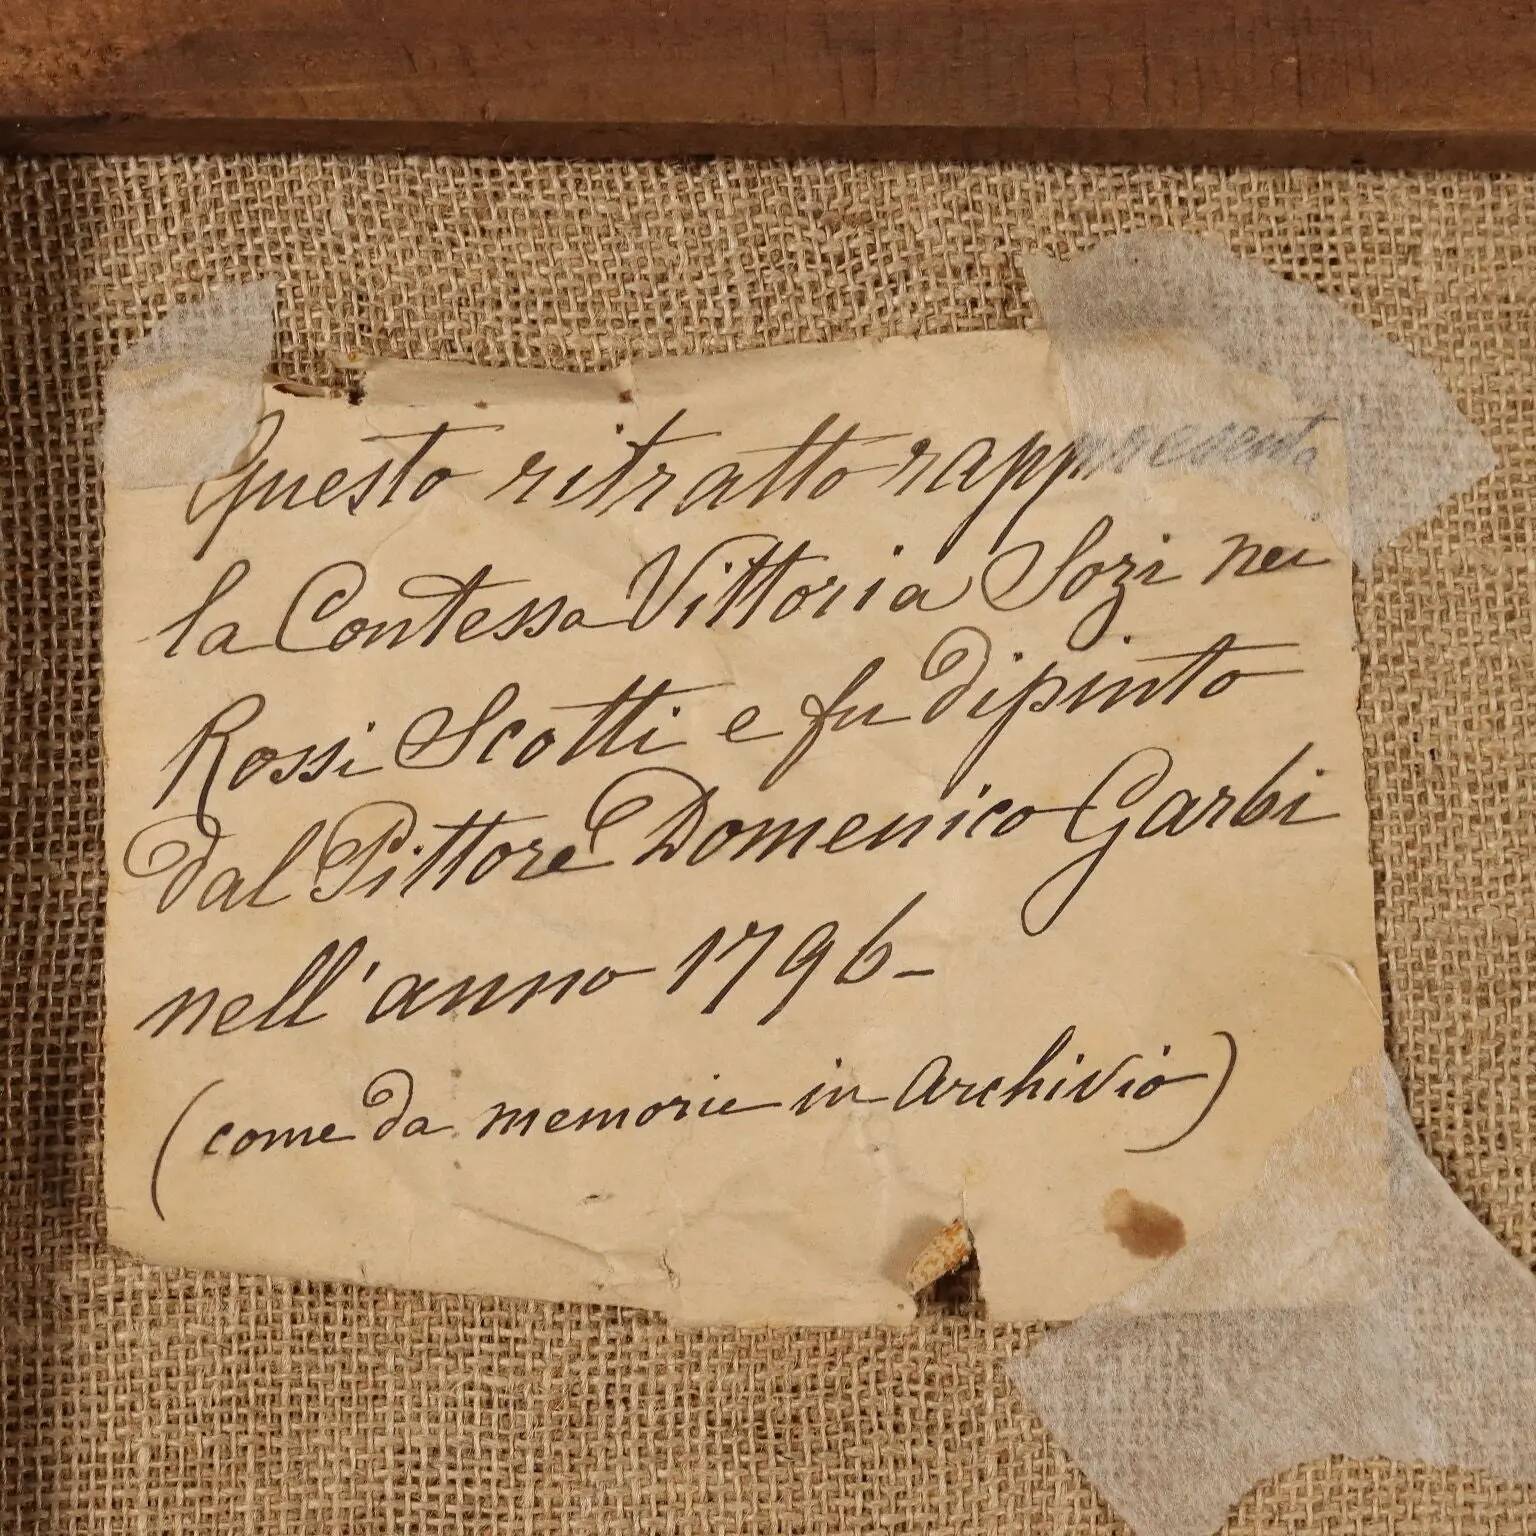 Questo ritratto rappresenta
la Contessa Vittoria Sozi nei
Rossi Scotti e fu dipinto
dal Pittore Domenico Garbi
nell'anno 1796-
(come da memorie in Archivio)